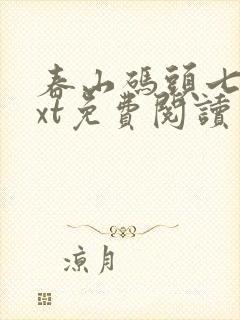 春山碼頭七
xt免費閱讀
涼月